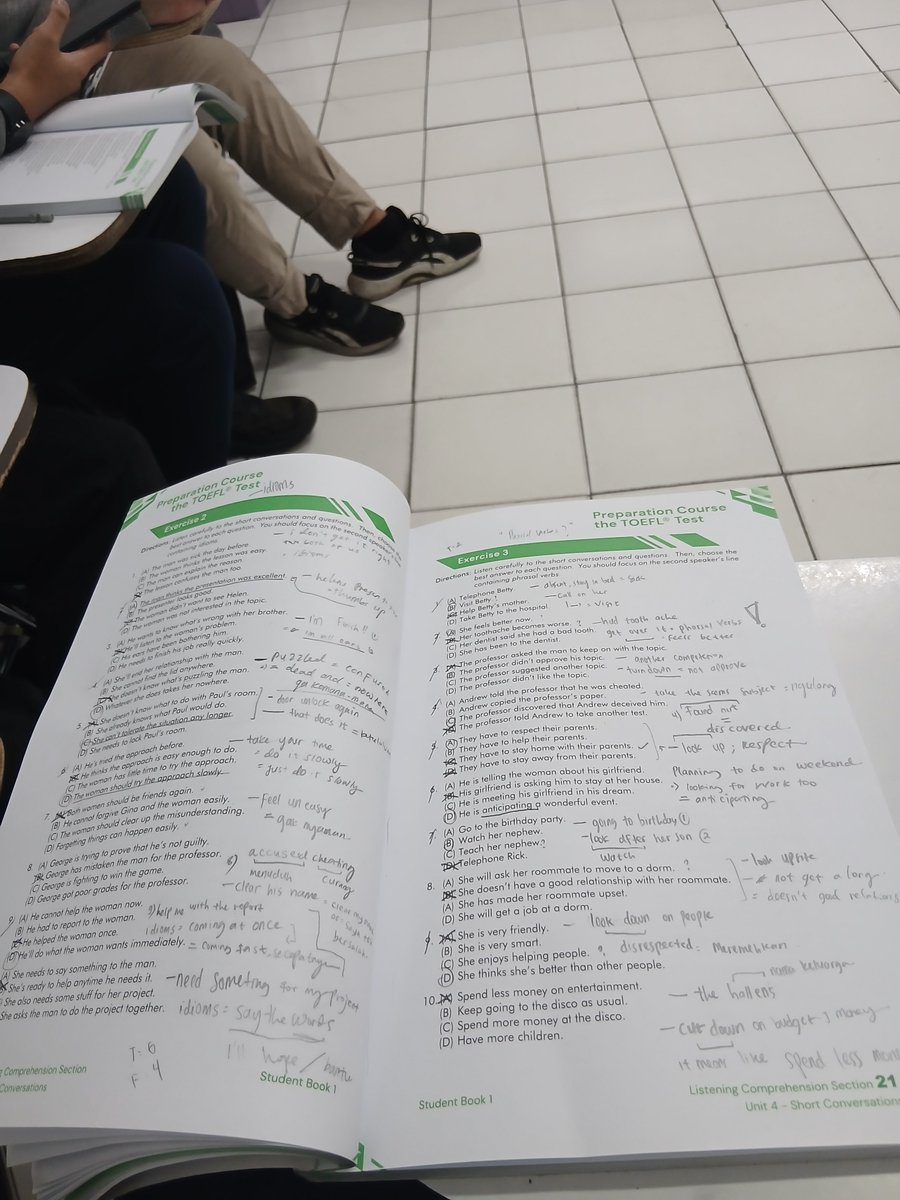 Preparation Course
the TOEFL® Test
idioms
Exercise 2
Directions: Listen carefully to the short conversations and questions. Then, choose the
best answer to each question. You should focus on the second speaker's line
containing idioms.
1. (A) The man was sick the day before.
(B) The woman thinks the lesson was easy.
(C) The man can explain the reason.
(D) The lesson confuses the man too.
2. (A) The man thinks the presentation was excellent.
(B) The presenter looks good.
(C) The woman didn't want to see Helen.
(D) The woman was not interested in the topic.
3. (A) He wants to know what's wrong with her brother.
(B) He'll listen to the woman's problem.
(C) His ears have been bothering him.
(D) He needs to finish his job really quickly.
4. (A) She'll end her relationship with the man.
(B) She cannot find the lid anywhere.
(C) She doesn't know what's puzzling the man.
(D) Whatever she does takes her nowhere.
5. (A) She doesn't know what to do with Paul's room.
(B) She already knows what Paul would do.
(C) She can't tolerate the situation any longer.
(D) She needs to lock Paul's room.
6. (A) He's tried the approach before.
(B) He thinks the approach is easy enough to do.
(C) The woman has little time to try the approach.
(D) The woman should try the approach slowly.
7. (A) Both women should be friends again.
(B) He cannot forgive Gina and the woman easily.
(C) The woman should clear up the misunderstanding.
(D) Forgetting things can happen easily.
8. (A) George is trying to prove that he's not guilty.
(B) George has mistaken the man for the professor.
(C) George is fighting to win the game.
(D) George got poor grades for the professor.
9. (A) He cannot help the woman now.
(B) He had to report to the woman.
(C) He helped the woman once.
(D) He'll do what the woman wants immediately.
(A) She needs to say something to the man.
She's ready to help anytime he needs it.
She also needs some stuff for her project.
She asks the man to do the project together.
thumb up
I'm finish!!
I'm all ears
puzzled = confused
dead end = nowhere
door unlock again
that does it
take your time
= do it slowly
= just do it slowly
Feel uneasy
= gak nyaman
accused cheating
menuduh curang
clear his name
help me with the report
idioms = coming at once
= coming fast, secepatnya
need someting for my project
idioms = say the words
T: 6
F 4
I'll hope
g Comprehension Section
Conversations
Student Book 1
Preparation Course
the TOEFL® Test
Exercise 3
Directions: Listen carefully to the short conversations and questions. Then, choose the
best answer to each question. You should focus on the second speaker's line
containing phrasal verbs
(A) Telephone Betty
(B) Visit Betty
(C) Help Betty's mother
(D) Take Betty to the hospital
(A) She feels better now.
(B) Her toothache becomes worse.
(C) Her dentist said she had a bad tooth.
(D) She has been to the dentist.
(A) The professor asked the man to keep on with the topic.
(B) The professor didn't approve his topic.
(C) The professor suggested another topic.
(D) The professor didn't like the topic.
(A) Andrew told the professor that he was cheated.
(B) Andrew copied the professor's paper.
(C) The professor discovered that Andrew deceived him.
(D) The professor told Andrew to take another test.
(A) They have to respect their parents.
(B) They have to help their parents.
(C) They have to stay home with their parents.
(D) They have to stay away from their parents.
(A) He is telling the woman about his girlfriend.
(B) His girlfriend is asking him to stay at her house.
(C) He is meeting his girlfriend in his dream.
(D) He is anticipating a wonderful event.
(A) Go to the birthday party.
(B) Watch her nephew.
(C) Teach her nephew.
(D) Telephone Rick.
8. (A) She will ask her roommate to move to a dorm.
(B) She doesn't have a good relationship with her roommate.
(A) She has made her roommate upset.
(D) She will get a job at a dorm.
9. (A) She is very friendly.
(B) She is very smart.
(C) She enjoys helping people.
(D) She thinks she's better than other people.
10. (A) Spend less money on entertainment.
(B) Keep going to the disco as usual.
(C) Spend more money at the disco.
(D) Have more children.
call on her
= visit
had tooth ache
get over it = phrasal verbs
feels better
turn down = not approve
Found out
= discovered
look up ; Respect
Planning to do on weekend
looking for work too
= anticipating
going to birthday ①
look after her son ②
watch
not get a long
look down on people
disrespected = meremehkan
cut down on budget
it means like spend less money
Student Book 1
Listening Comprehension Section 21
Unit 4 - Short Conversations